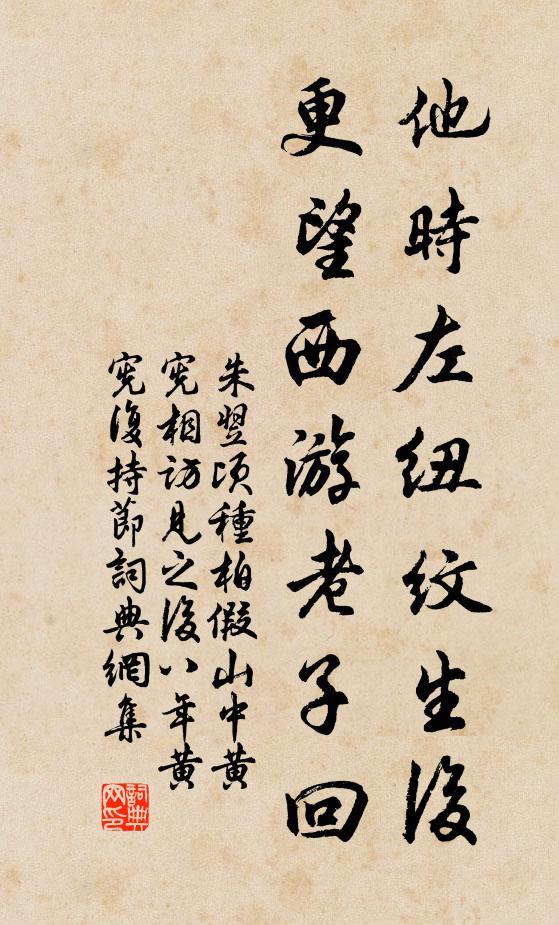 他時左紐紋生後
更望西游老子回
朱翌頃種柏假山中黃
宪相訪見之後八年黃
宪復持節詞典網集
詞典网印